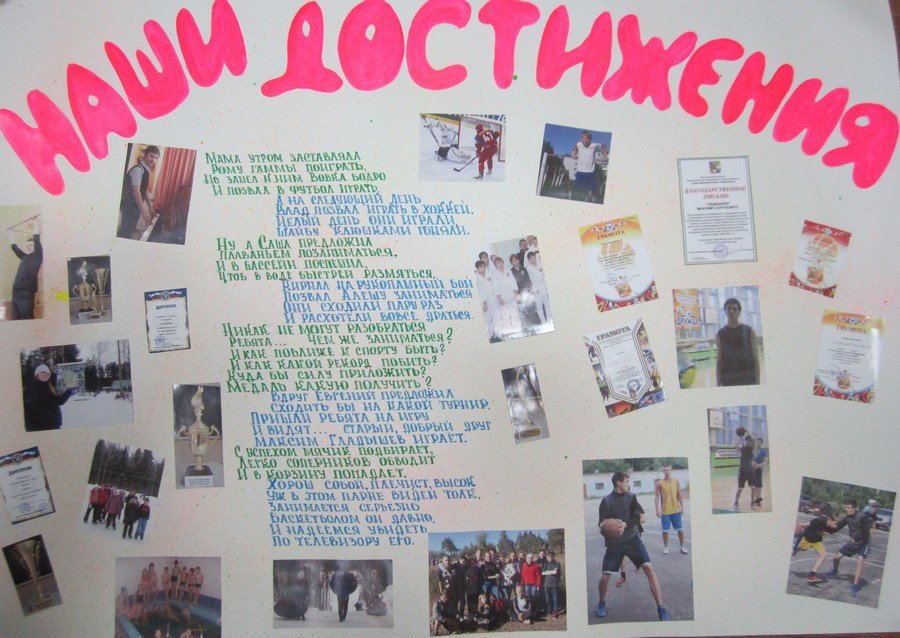 НАШИ ДОСТИЖЕНИЯ
Мама утром заставляла
Рому гаммы поиграть,
Но зашел к ним Вовка бодро
И позвал в футбол играть.
А на следующий день
Влад позвал играть в хоккей.
Целый день они играли,
Шайбу клюшками гоняли.
Ну а Саша предложила
Плаваньем позаниматься,
И в бассейн поспешила,
Чтоб в воде быстрей размяться.
Кирилл на рукопашный бой
Позвал Алешу заниматься
Они сходили пару раз,
И расхотели вовсе драться.
Никак не могут разобраться
Ребята... чем же заниматься?
И как поближе к спорту быть?
И как какой рекорд побить?
Куда бы силу приложить?
Медаль какую получить?
Вдруг Евгений предложил
Сходить бы на какой турнир.
Пришли ребята на игру
И видят... старый, добрый друг
Максим Гладышев играет.
С успехом мячик подбирает,
Легко соперников обводит
И в корзину попадает.
Хорош собой, плечист, высок
Уж в этом парне виден толк.
Занимается серьезно
Баскетболом он давно,
И надеемся увидеть
По телевизору его.
БЛАГОДАРСТВЕННОЕ
ПИСЬМО
ГРАМОТА
ГРАМОТА
ГРАМОТА
ГРАМОТА
ДИПЛОМ
ДИПЛОМ